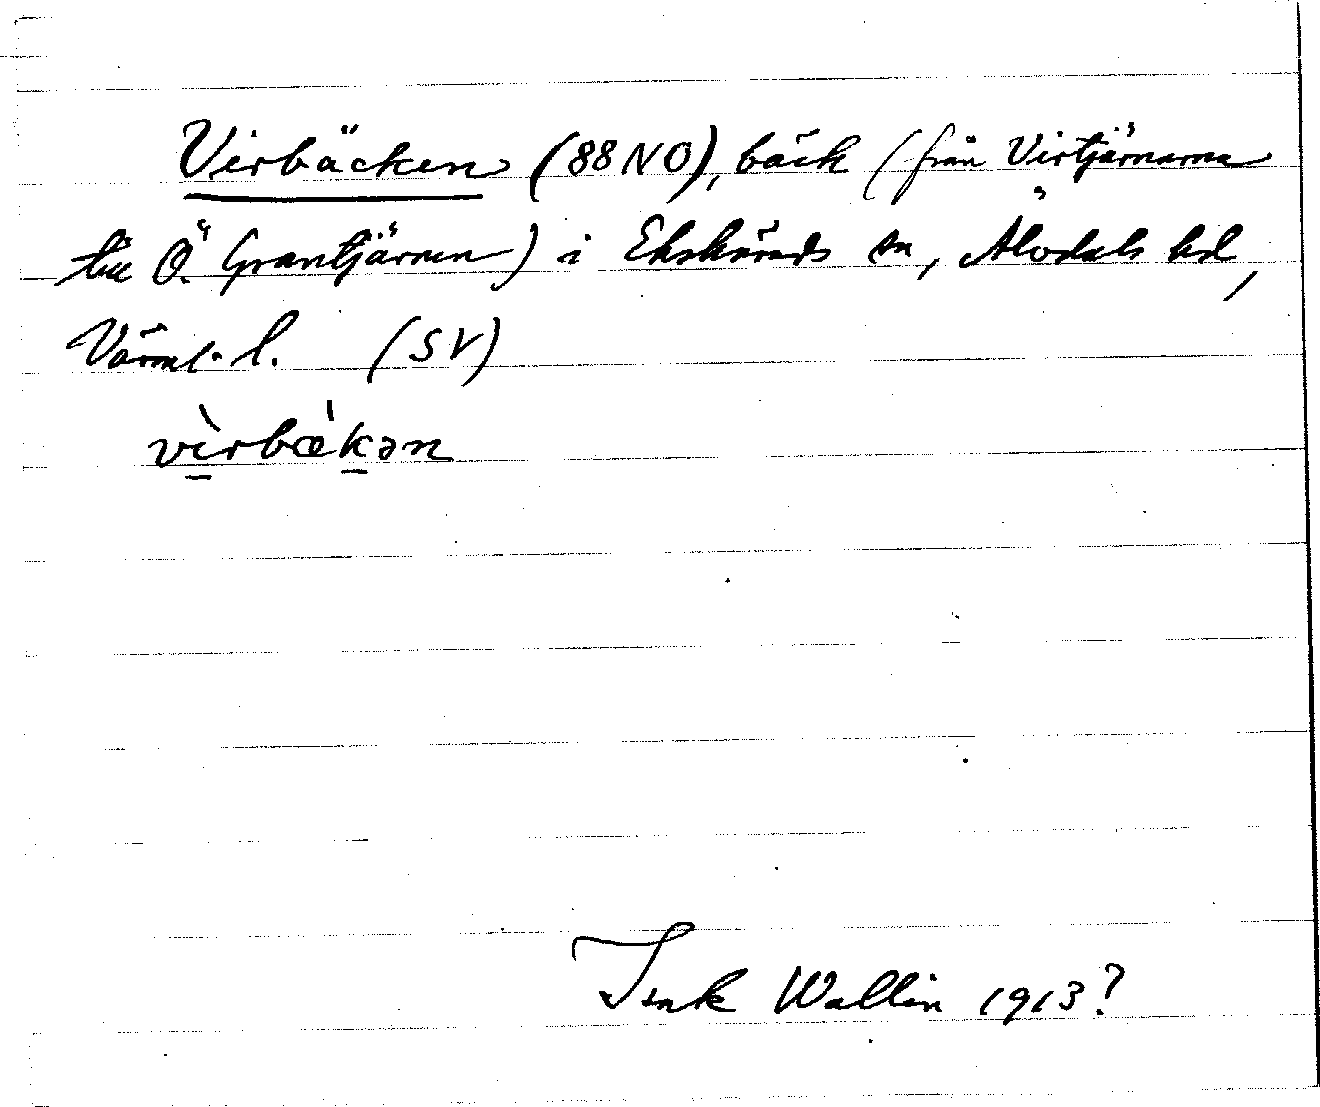 Virbäcken (88 NO), bäck (från Virtjärnarna
till Ö. Grantjärnen) i Ekshärads sn, Älvdals hd,
Värml. l. (SV)
vìrbækən
Wallin 1913?